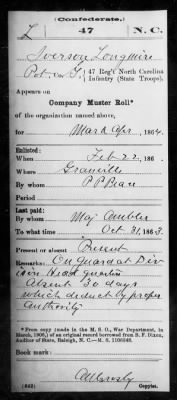 (Confederate.)
L 47 N.C.
Iverson Longmire
Pvt Co. G, 47 Reg't North Carolina
Infantry (State Troops).
Appears on
Company Muster Roll*
of the organization named above,
for Mar & Apr, 1864.
Enlisted:
When Feb 22, 186
Where Granville
By whom P P Peace
Period
Last paid:
By whom Maj Ambler
To what time Oct 31, 1863.
Present or absent Present
Remarks: On guard at Div
ision Head quarters
Absent 30 days
which deduct by proper
authority
*From copy (made in the M. S. O., War Department, in
March, 1908,) of an original record borrowed from B. F. Dixon,
Auditor of State, Raleigh, N. C.
Book mark:
(642) Copyist.